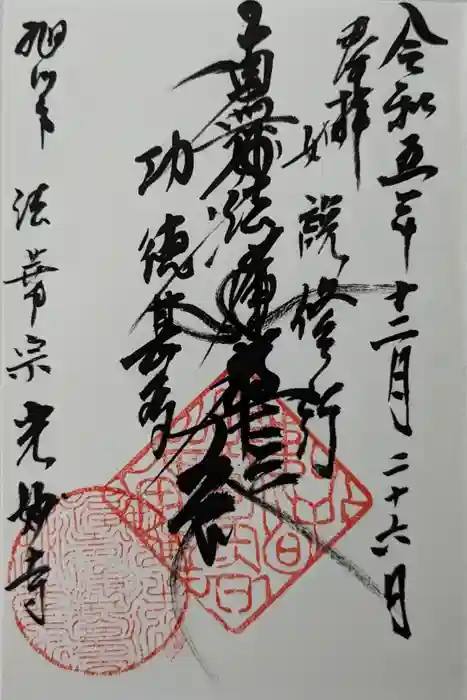 令和五年十二月二十六日
奉拝
如説修行
南無妙法蓮華経
功徳甚多
旭川市 法華宗 光妙寺